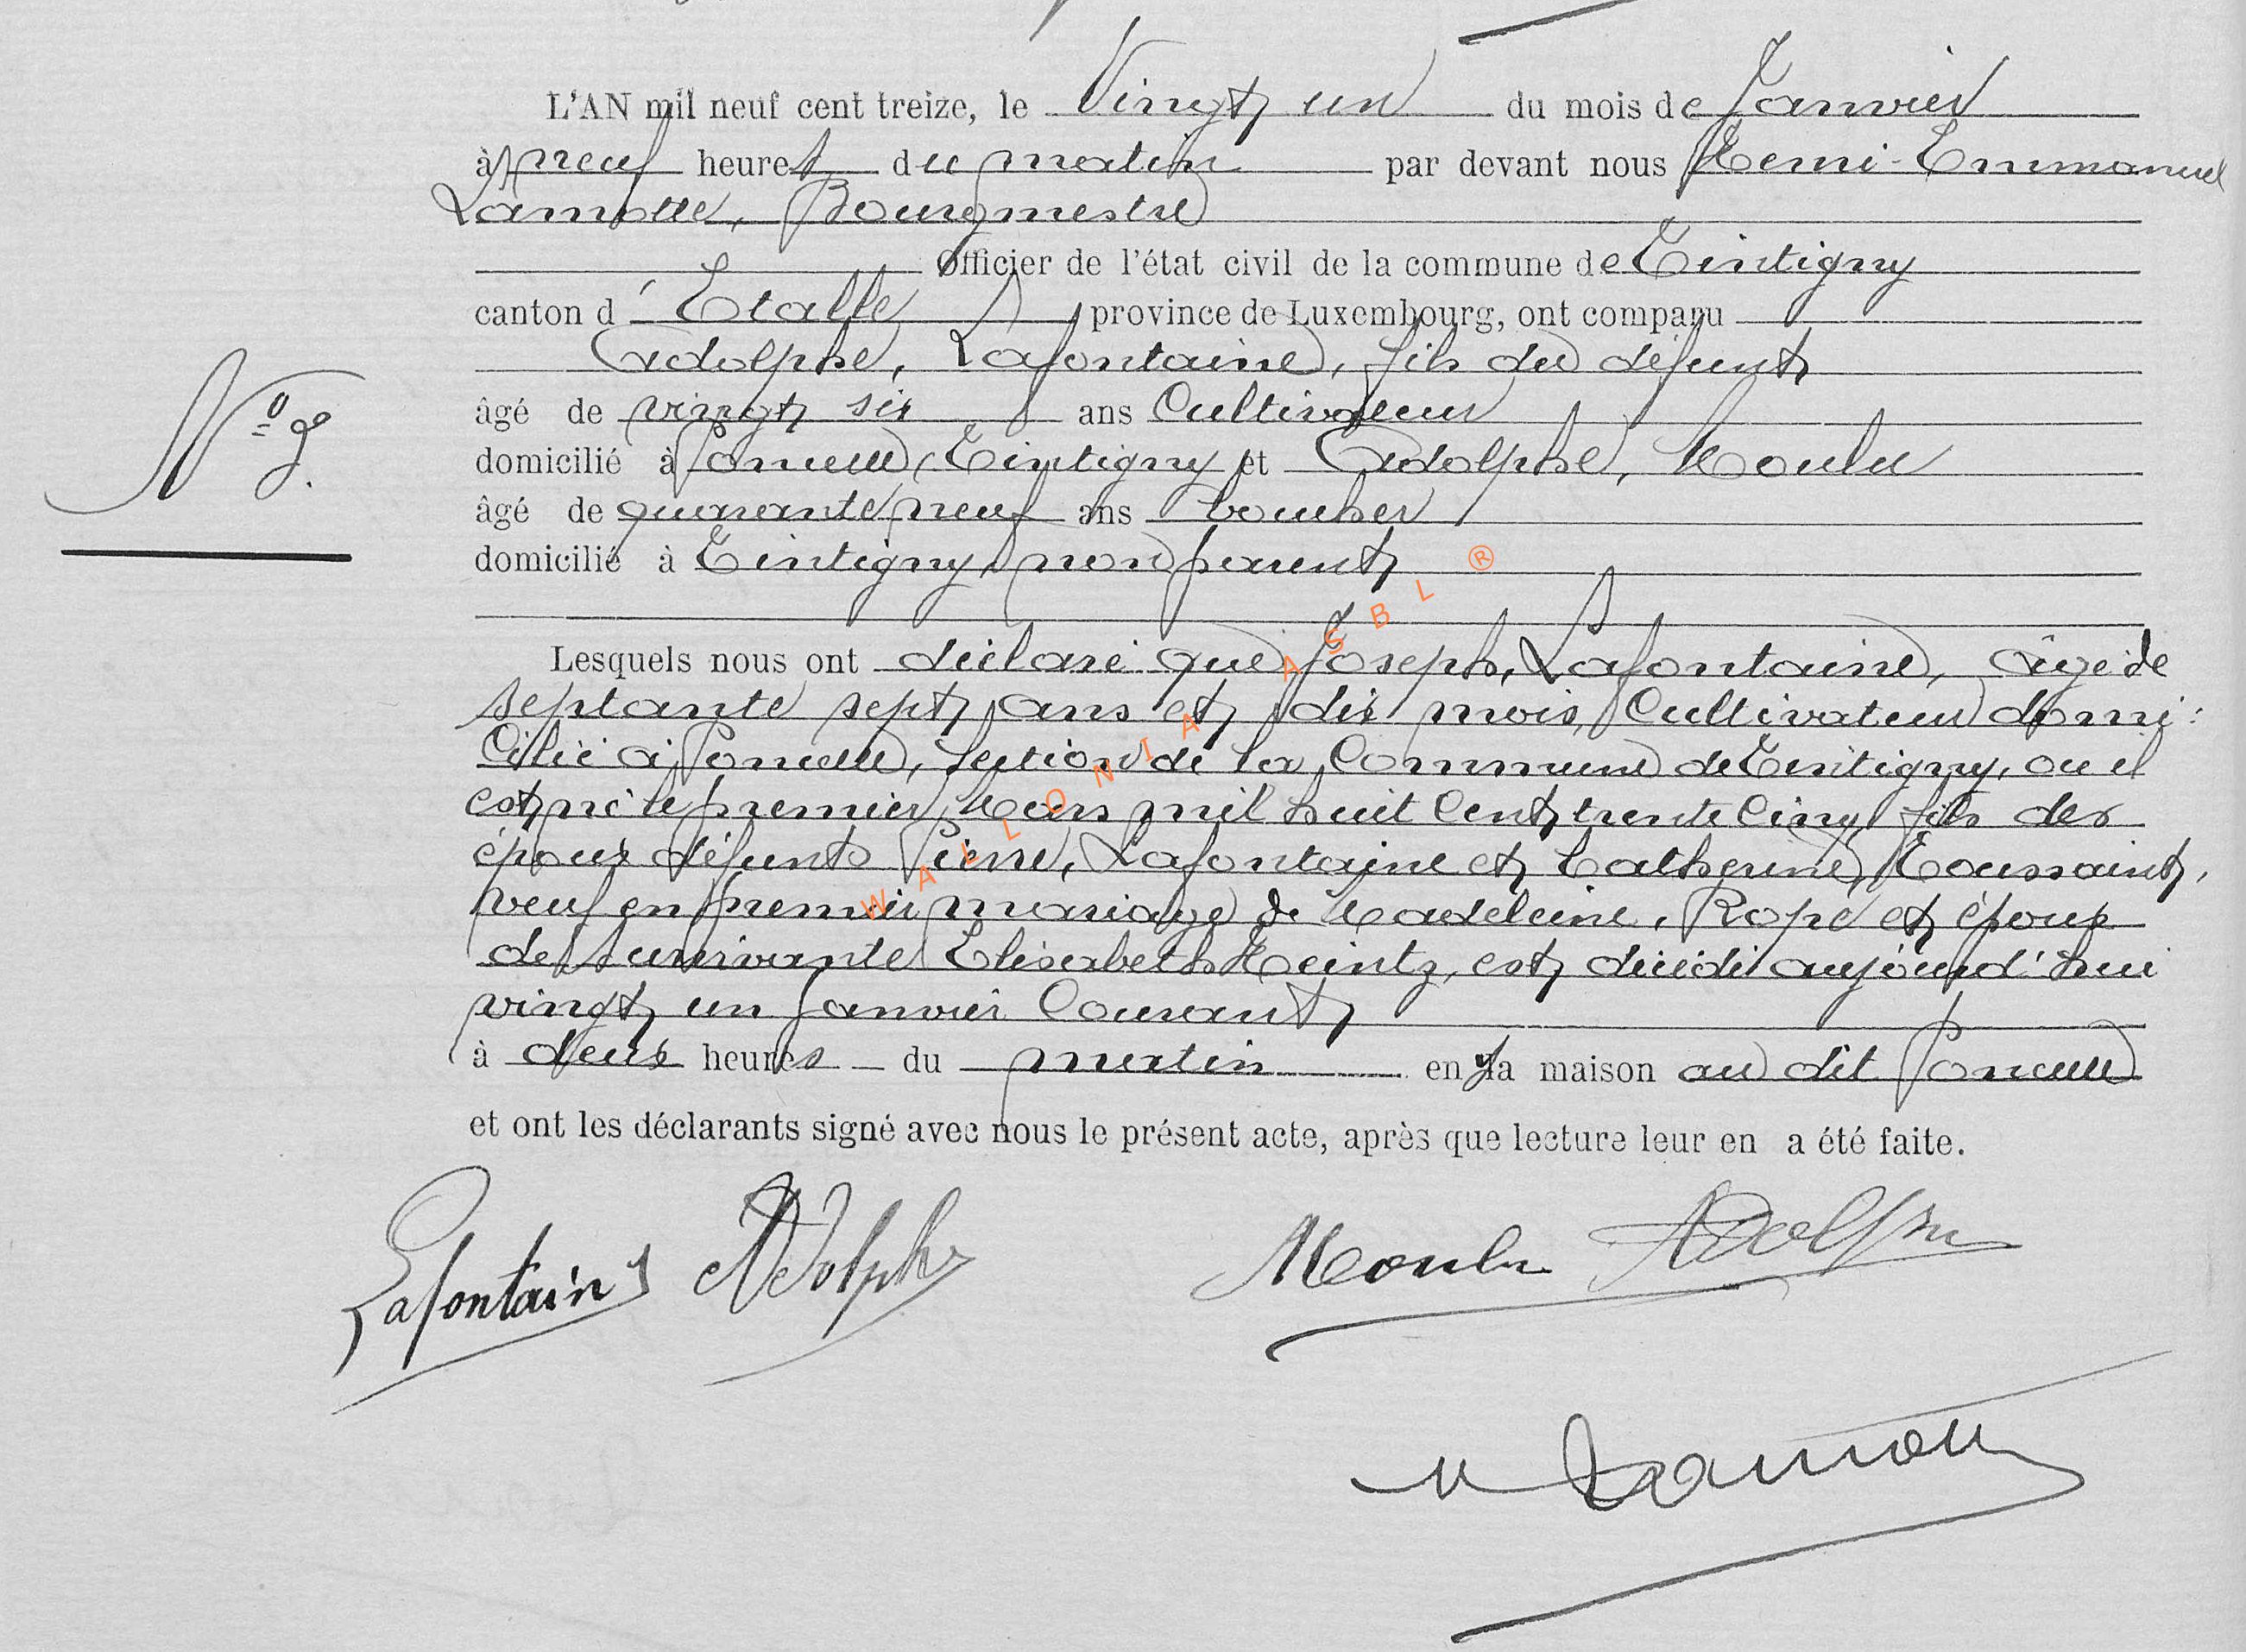 L'AN mil neuf cent treize, le Vingt un du mois de Janvier
à neuf heures du matin par devant nous Henri-Emmanuel
Lamotte, Bourgmestre
Officier de l'état civil de la commune de Tintigny
canton d'Etalle province de Luxembourg, ont comparu
Adolphe, Lafontaine, fils du défunt
âgé de vingt six ans Cultivateur
domicilié à Poncelle, Tintigny et Adolphe, Moulu
N° 2.
âgé de quarante neuf ans boucher
domicilié à Tintigny, non parent
Lesquels nous ont déclaré que Joseph, Lafontaine, âgé de
septante sept ans et dix mois, Cultivateur domi:
Cilié à Poncelle, section de la Commune de Tintigny, ou il
est né le premier Mars mil huit Cent trente Cinq, fils des
époux défunts Pierre, Lafontaine et Catherine, Toussaint,
veuf en premier mariage de Madeleine, Ropé et époux
de survivante Elisabeth Heintz, est décédé aujourd'hui
vingt un Janvier Courant
à deux heures du matin en sa maison au dit Poncelle
et ont les déclarants signé avec nous le présent acte, après que lecture leur en a été faite.
Lafontaine Adolphe Moulu Adolphe
Lamotte
WALLONIA ASBL ®